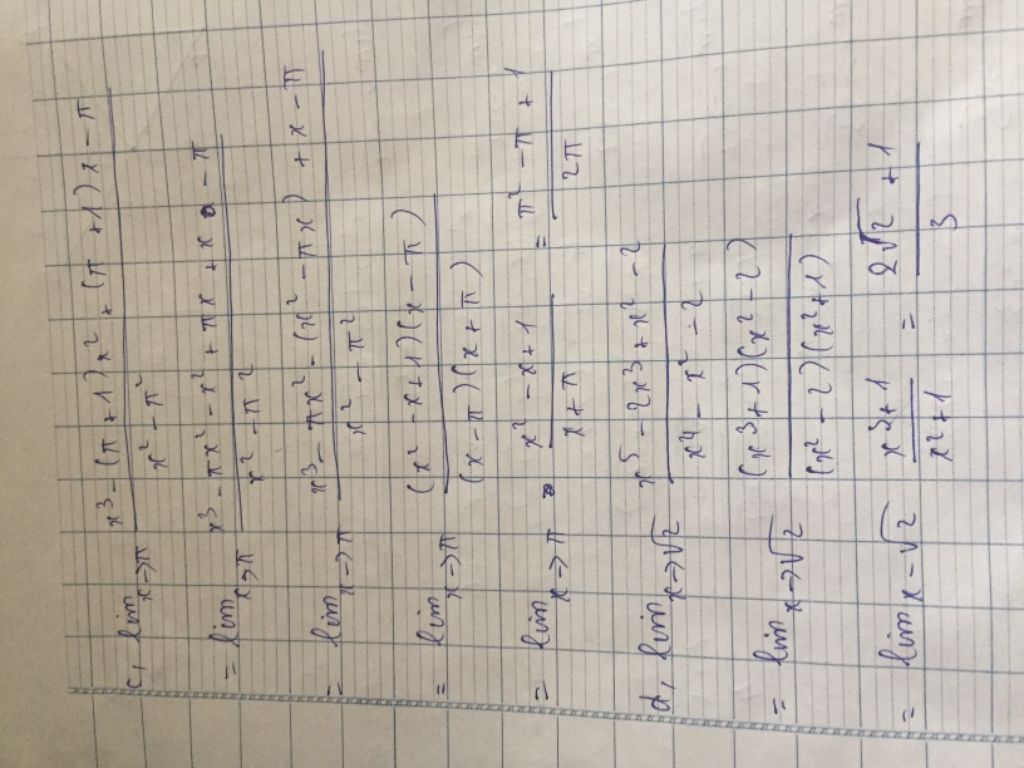 c, lim x→π (x³ - (π+1)x² + (π+1)x - π)/(x² - π²)
= lim x→π (x³ - πx² - x² + πx + x - π)/(x² - π²)
= lim x→π (x³ - πx² - (x² - πx) + x - π)/(x² - π²)
= lim x→π ((x² - x + 1)(x - π))/((x - π)(x + π))
= lim x→π (x² - x + 1)/(x + π) = (π² - π + 1)/(2π)
d, lim x→√2 (x⁵ - 2x³ + x² - 2)/(x⁴ - x² - 2)
= lim x→√2 ((x³ + 1)(x² - 2))/((x² - 2)(x² + 1))
= lim x-√2 (x³ + 1)/(x² + 1) = (2√2 + 1)/3